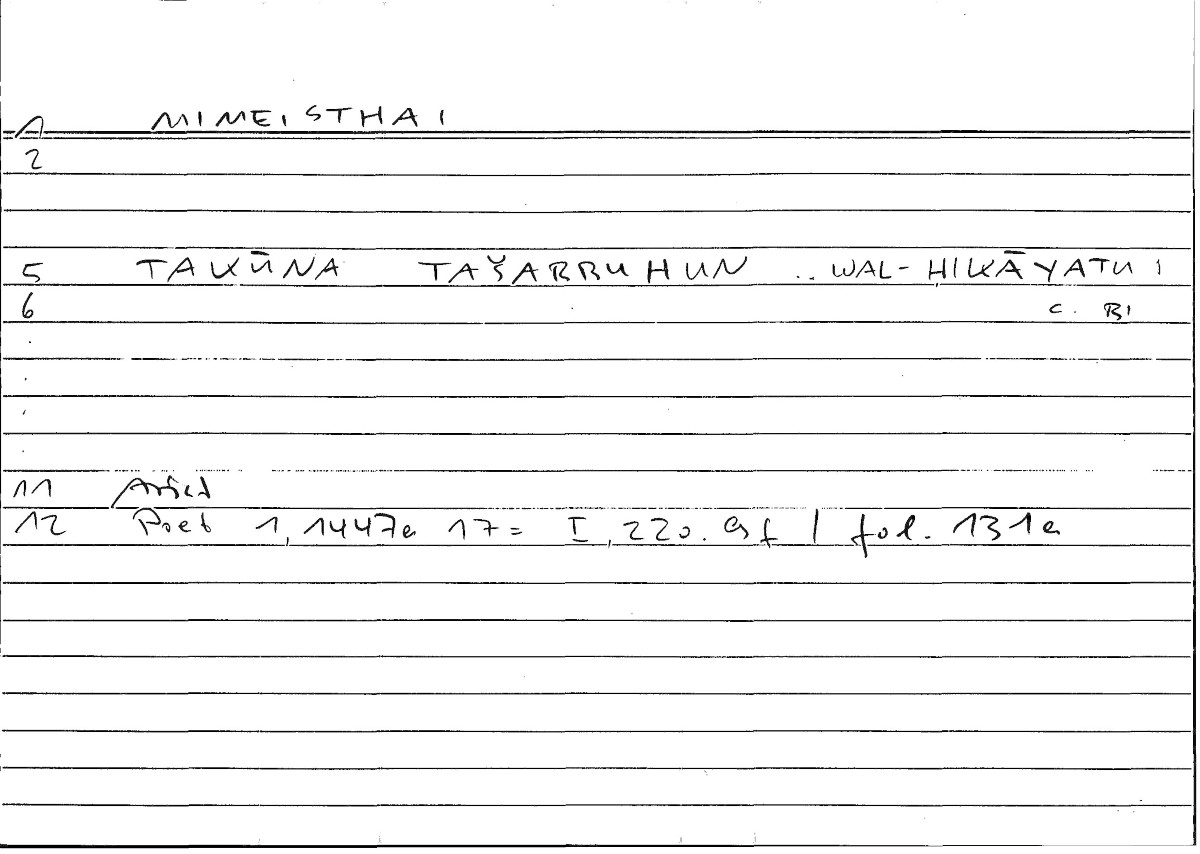 1 MIMEISTHAI
2
5 TAKŪNA TAŠARRUHUN .. WAL-ḤIKĀYATU I
6 C. BI
.
.
.
.
11 Arist
12 Poet 1, 1447a 17 = I, 220. 9f | fol. 131a